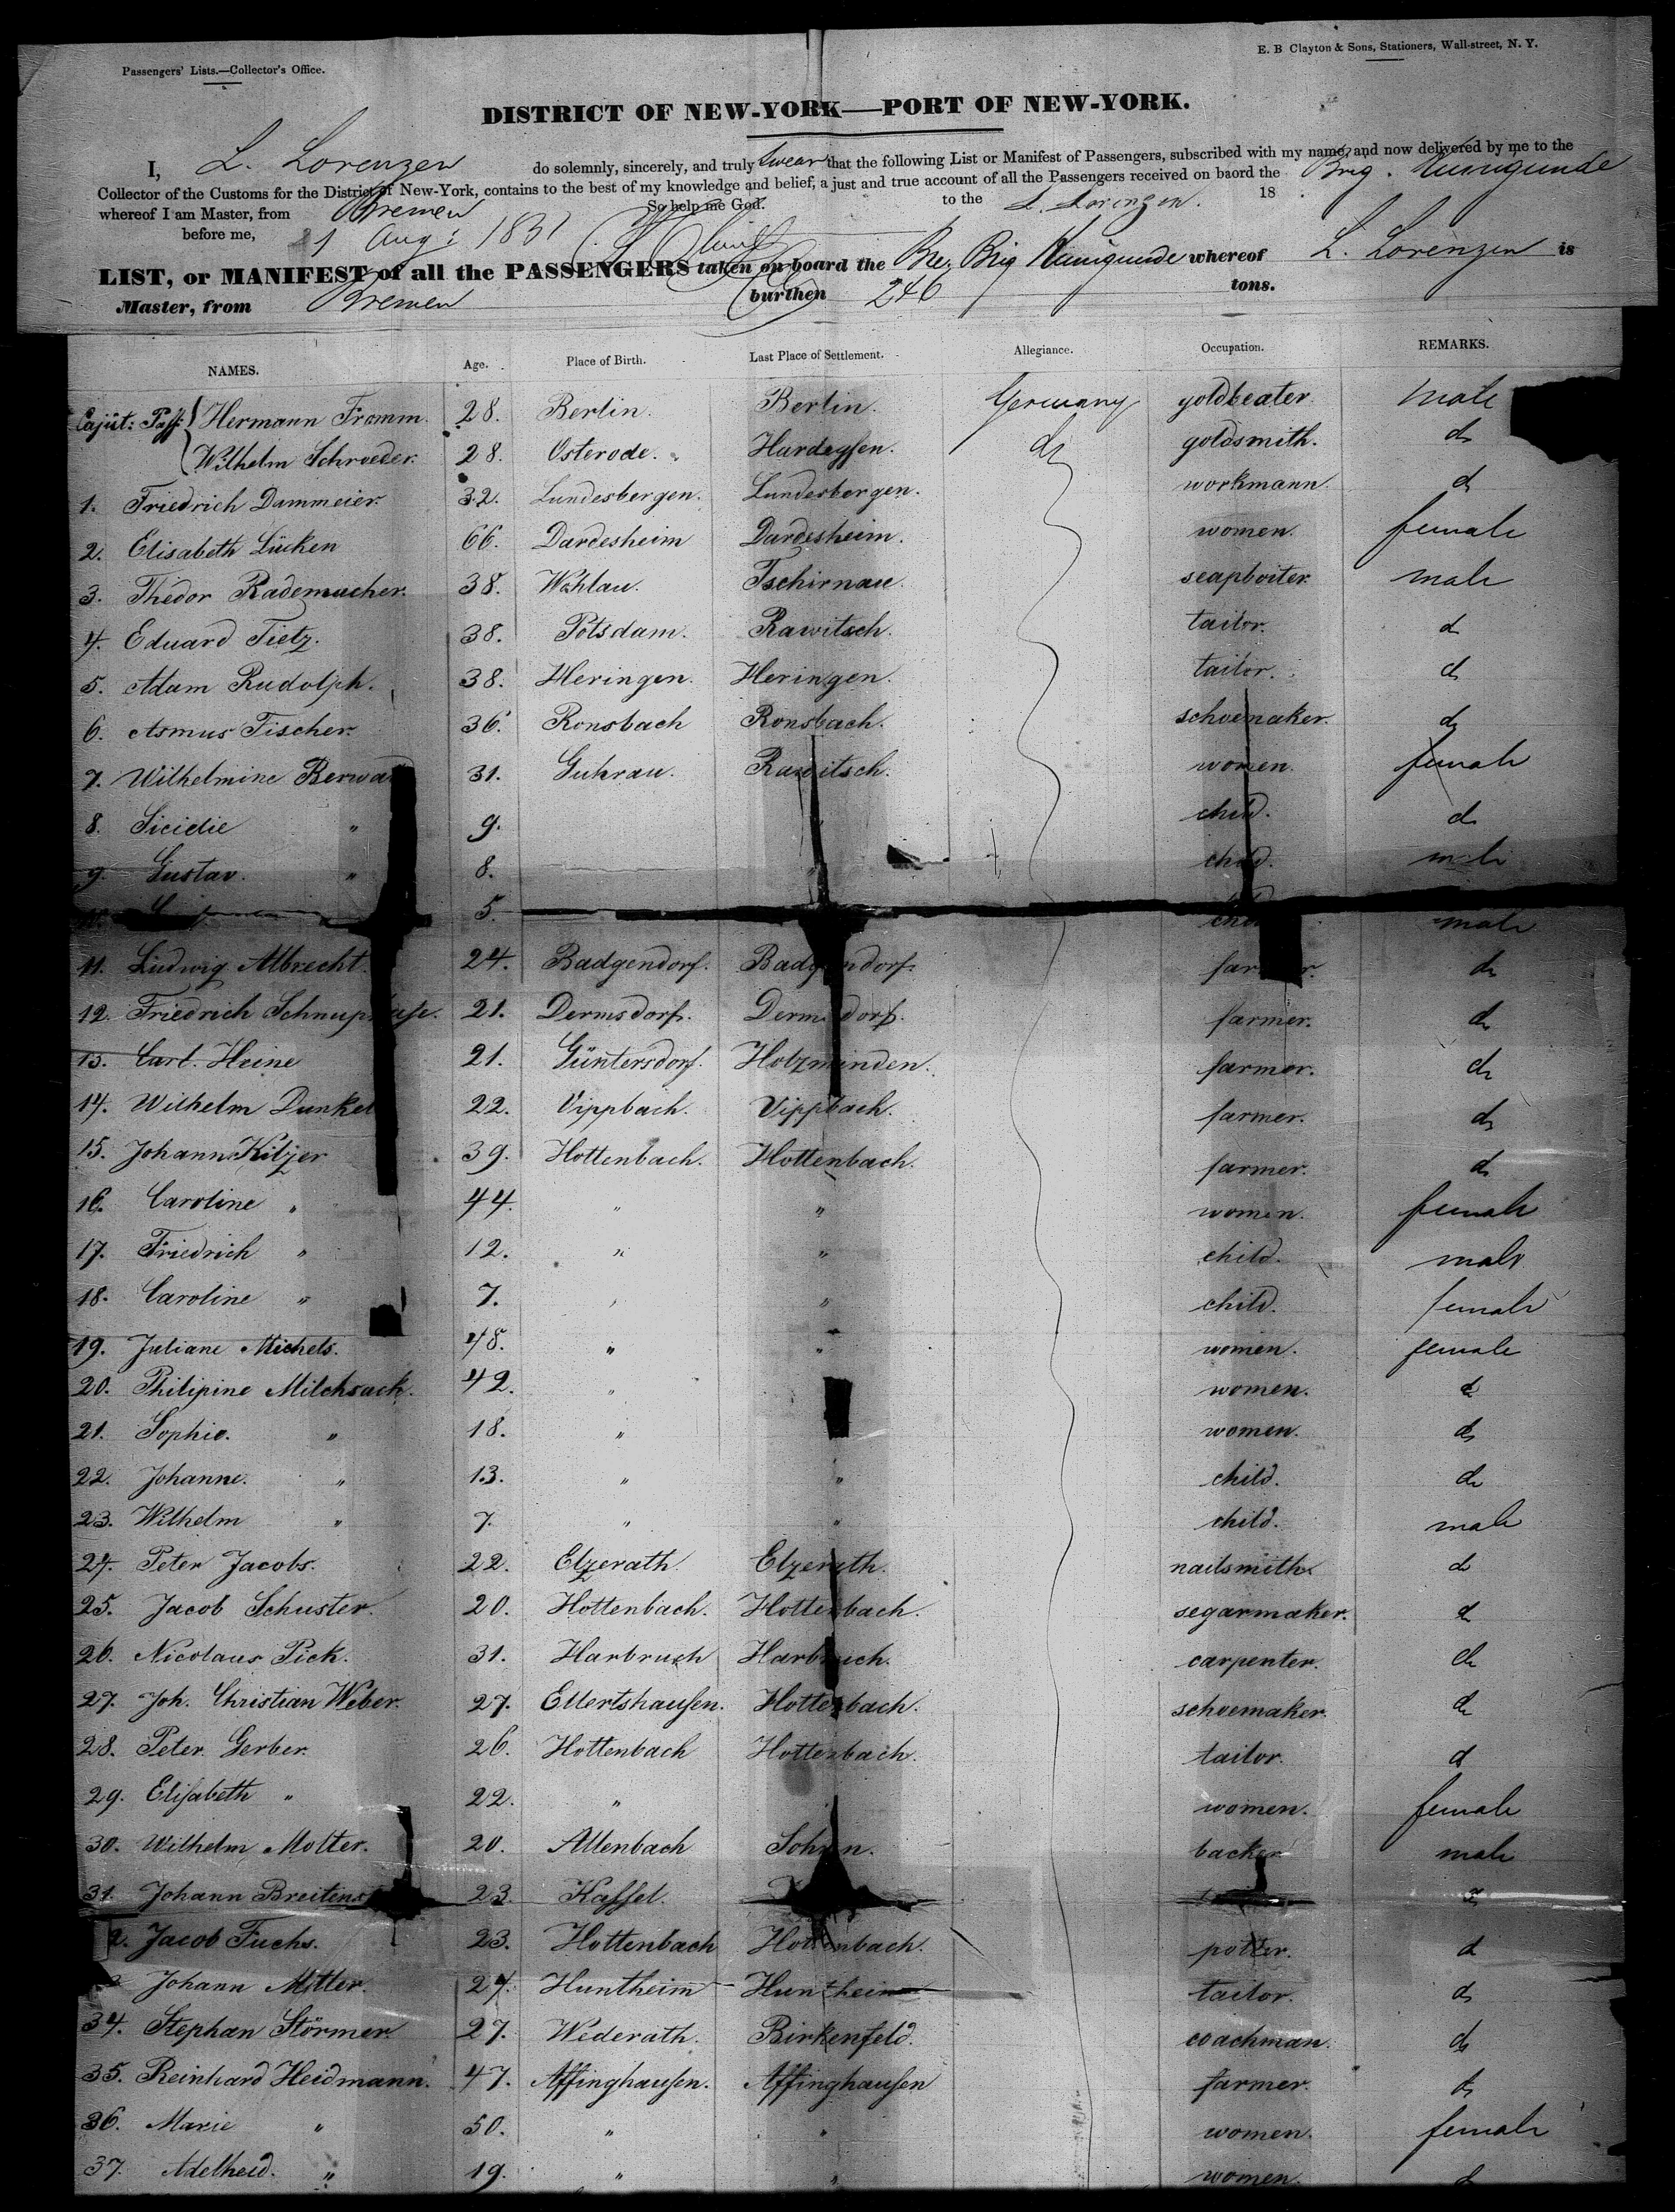 E. B Clayton & Sons, Stationers, Wall-street, N. Y.
Passengers' Lists.—Collector's Office.
DISTRICT OF NEW-YORK—PORT OF NEW-YORK.
I, L. Lorenzen do solemnly, sincerely, and truly swear that the following List or Manifest of Passengers, subscribed with my name, and now delivered by me to the
Collector of the Customs for the District of New-York, contains to the best of my knowledge and belief, a just and true account of all the Passengers received on baord the Brig. Kunigunde
whereof I am Master, from Bremen So help me God. to the L. Lorenzen. 18
before me, 1 Aug:
LIST, or MANIFEST of all the PASSENGERS taken on board the Bre. Brig Kunigunde whereof L. Lorenzen is
Master, from Bremen burthen 246 tons.
NAMES. Age. Place of Birth. Last Place of Settlement. Allegiance. Occupation. REMARKS.
Cajüt: Pass: Hermann Fromm. 28. Berlin. Berlin. Germany goldbeater. male
Wilhelm Schroeder. 28. Osterode. Hardeysen. do goldsmith. do
1. Friedrich Dammeier. 32. Lundesbergen. Lundesbergen. workmann. do
2. Elisabeth Lücken 66. Dardesheim Dardesheim. women. female
3. Thedor Rademacher. 38. Wohlau. Tschirnau. seapboiter. male
4. Eduard Tietz. 38. Potsdam. Rawitsch. tailor. do
5. Adam Rudolph. 38. Heringen. Heringen. tailor. do
6. Asmus Fischer. 36. Ronsbach Ronsbach. schoemaker. do
7. Wilhelmine 31. Guhrau. Rawitsch. women. female
8. " 9. child. do
9. Gustav. " 8. child. male
5. child male
11. Ludwig Albrecht. 24. Badgendorf. Badgendorf. farmer. do
12. Friedrich 21. Dermsdorf. Dermsdorf. farmer. do
13. Carl. Heine 21. Güntersdorf. Holzminden. farmer. do
14. Wilhelm Dunkel 22. Vippbach. Vippbach. farmer. do
15. Johann Kitzer 39. Hottenbach. Hottenbach. farmer. do
16. Caroline " 44. " " women. female
17. Friedrich " 12. " " child. male
18. Caroline " 7. " " child. female
19. Juliane Michels. 48. " " women. female
20. Philipine Milchsack. 42. " women. do
21. Sophie. " 18. " women. do
22. Johanne. " 13. " " child. do
23. Wilhelm " 7. " " child. male
24. Peter Jacobs. 22. Elzerath. Elzerath. nailsmith. do
25. Jacob Schuster. 20. Hottenbach. Hottenbach. segarmaker. do
26. Nicolaus Pick. 31. Harbruch Harbruch. carpenter. do
27. Joh. Christian Weber. 27. Ellertshausen. Hottenbach. schoemaker. do
28. Peter Gerber. 26. Hottenbach Hottenbach. tailor. do
29. Elisabeth " 22. " women. female
30. Wilhelm Molter. 20. Allenbach Sohren. backer male
31. Johann 23. Kassel. do
2. Jacob Fuchs. 23. Hottenbach Hottenbach. potter. do
Johann Mitler. 24. Huntheim Huntheim tailor. do
34. Stephan Störmer 27. Wederath. Birkenfeld. coachman. do
35. Reinhard Heidmann. 47. Affinghausen. Affinghausen farmer. do
36. Marie " 50. " " women. female
37. Adelheid. " 19. " " women. do